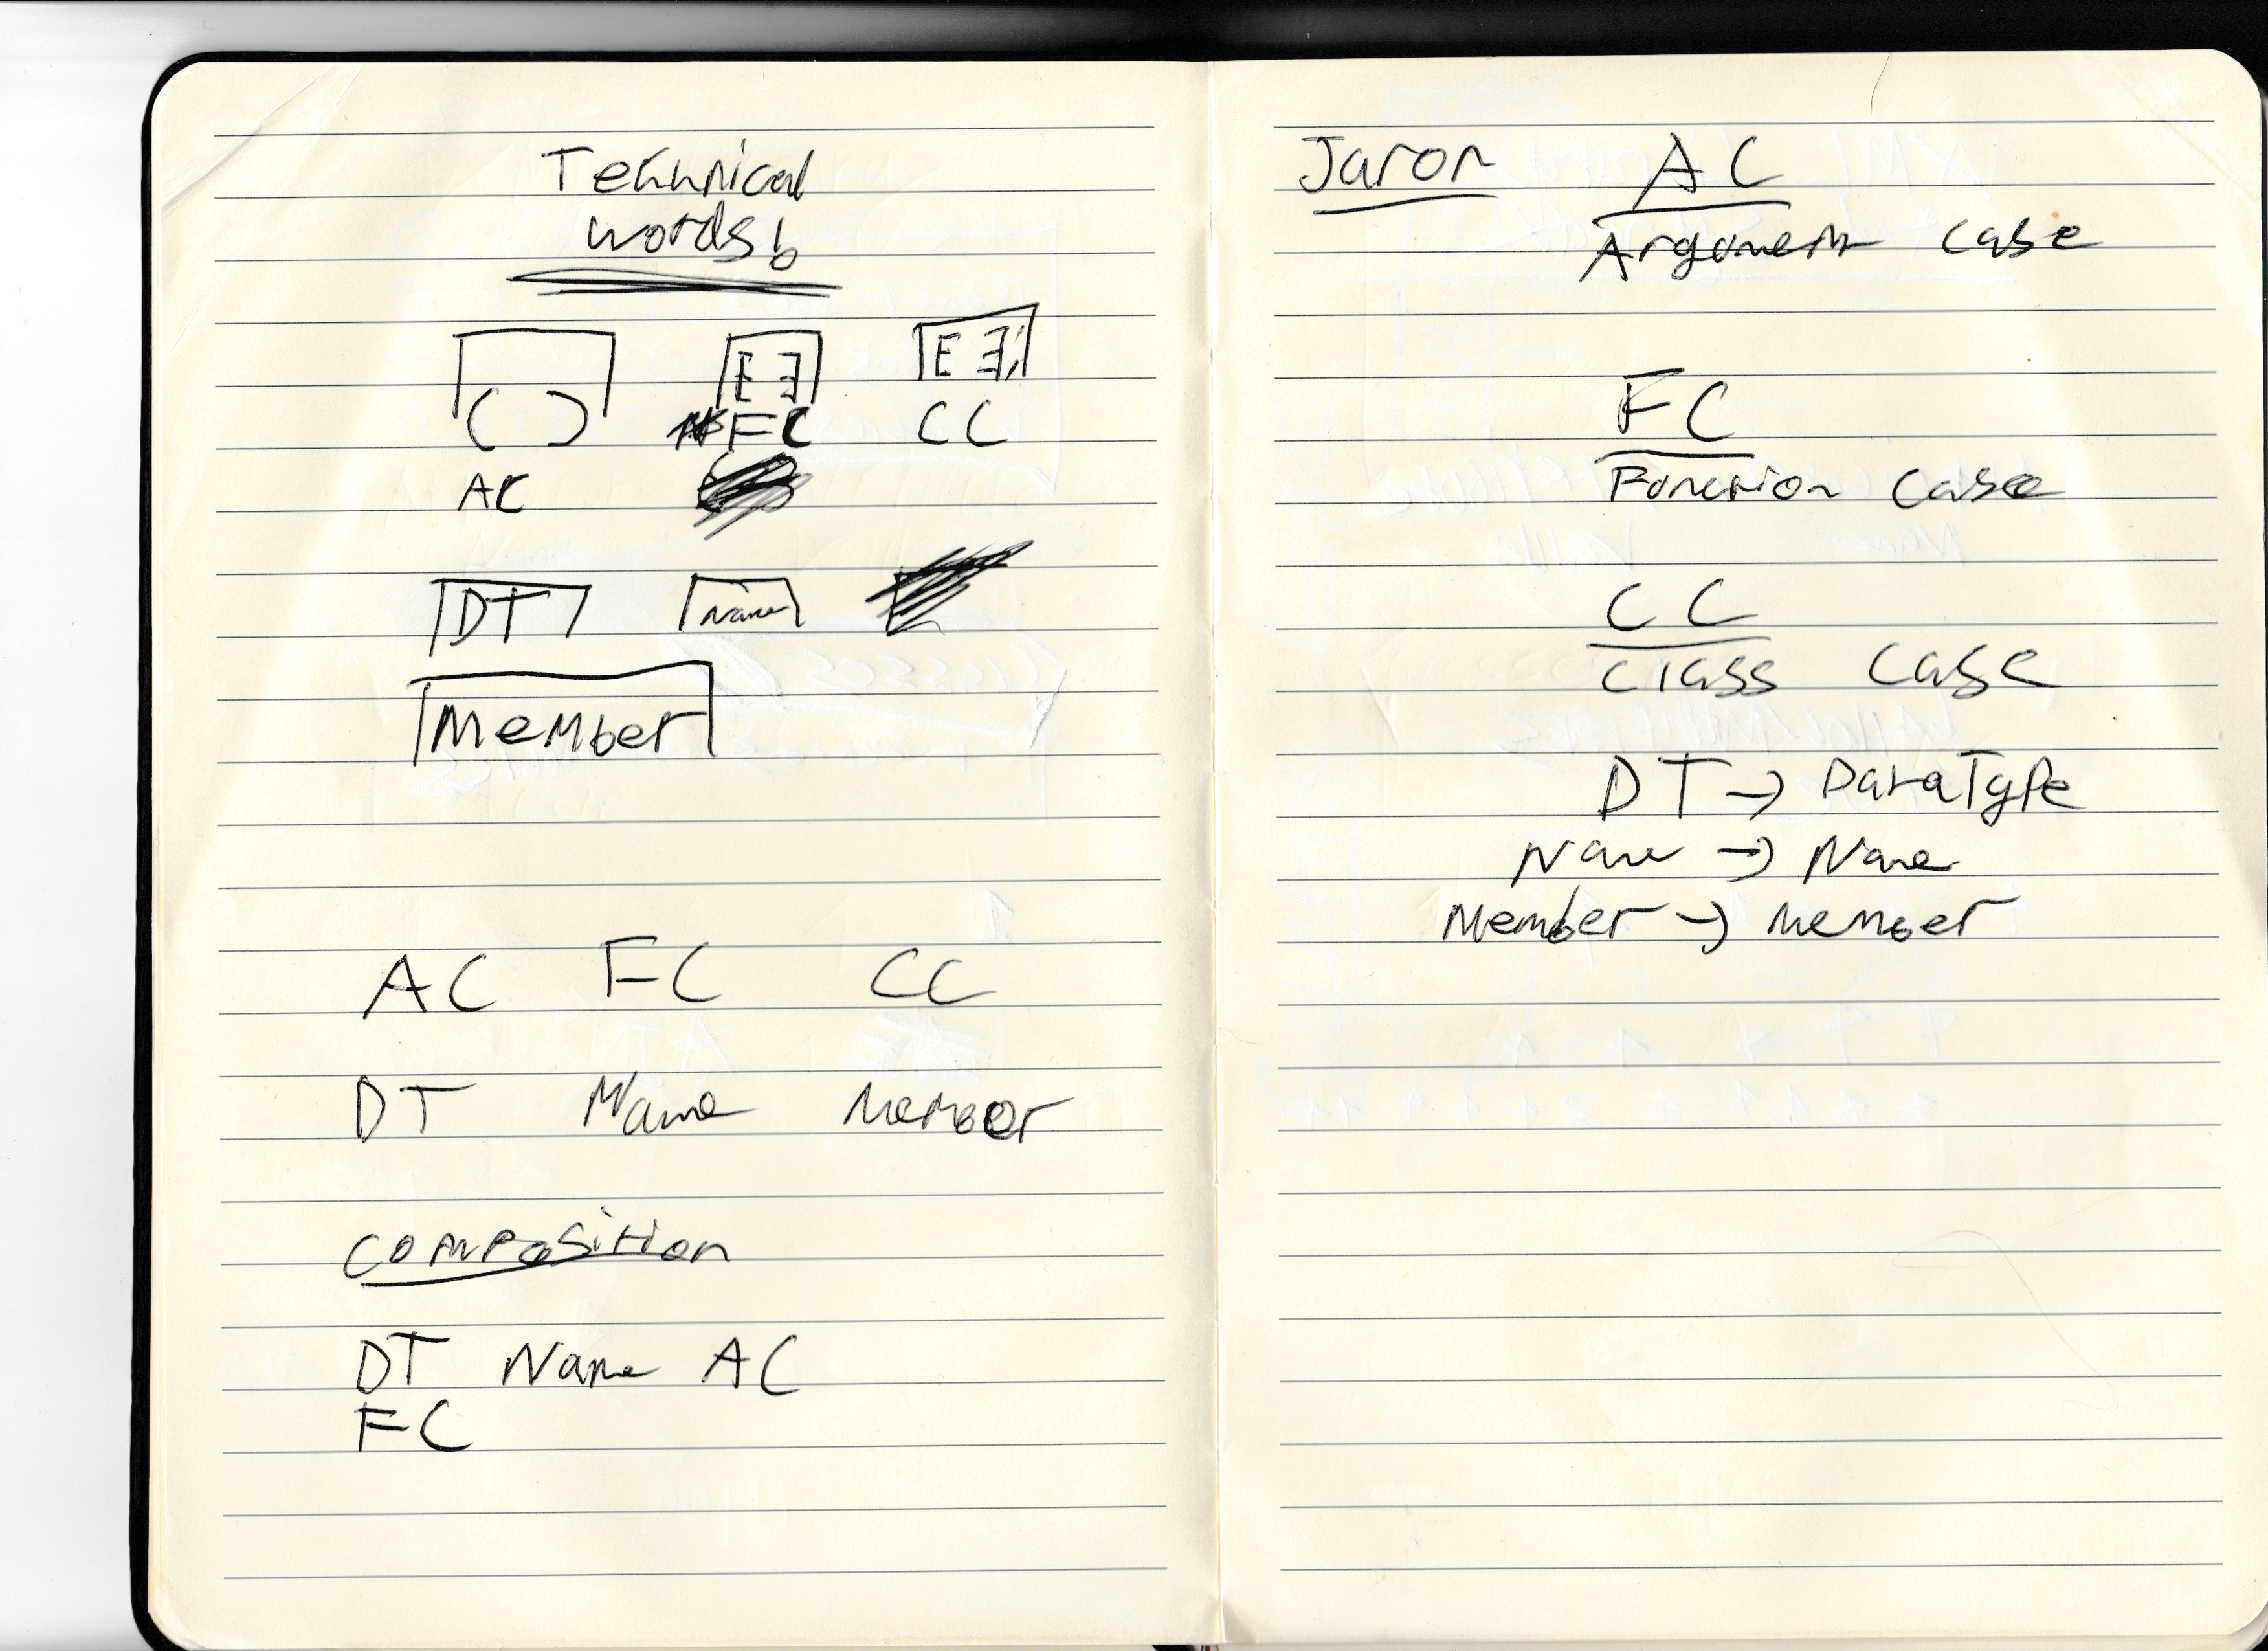 Technical
words
{ } { };
( ) FC CC
AC
DT Name
Member
AC FC CC
DT Name Member
Composition
DT Name AC
FC
Jaron AC
Argument Case
FC
Function Case
CC
Class Case
DT → DataType
Name → Name
Member → Member